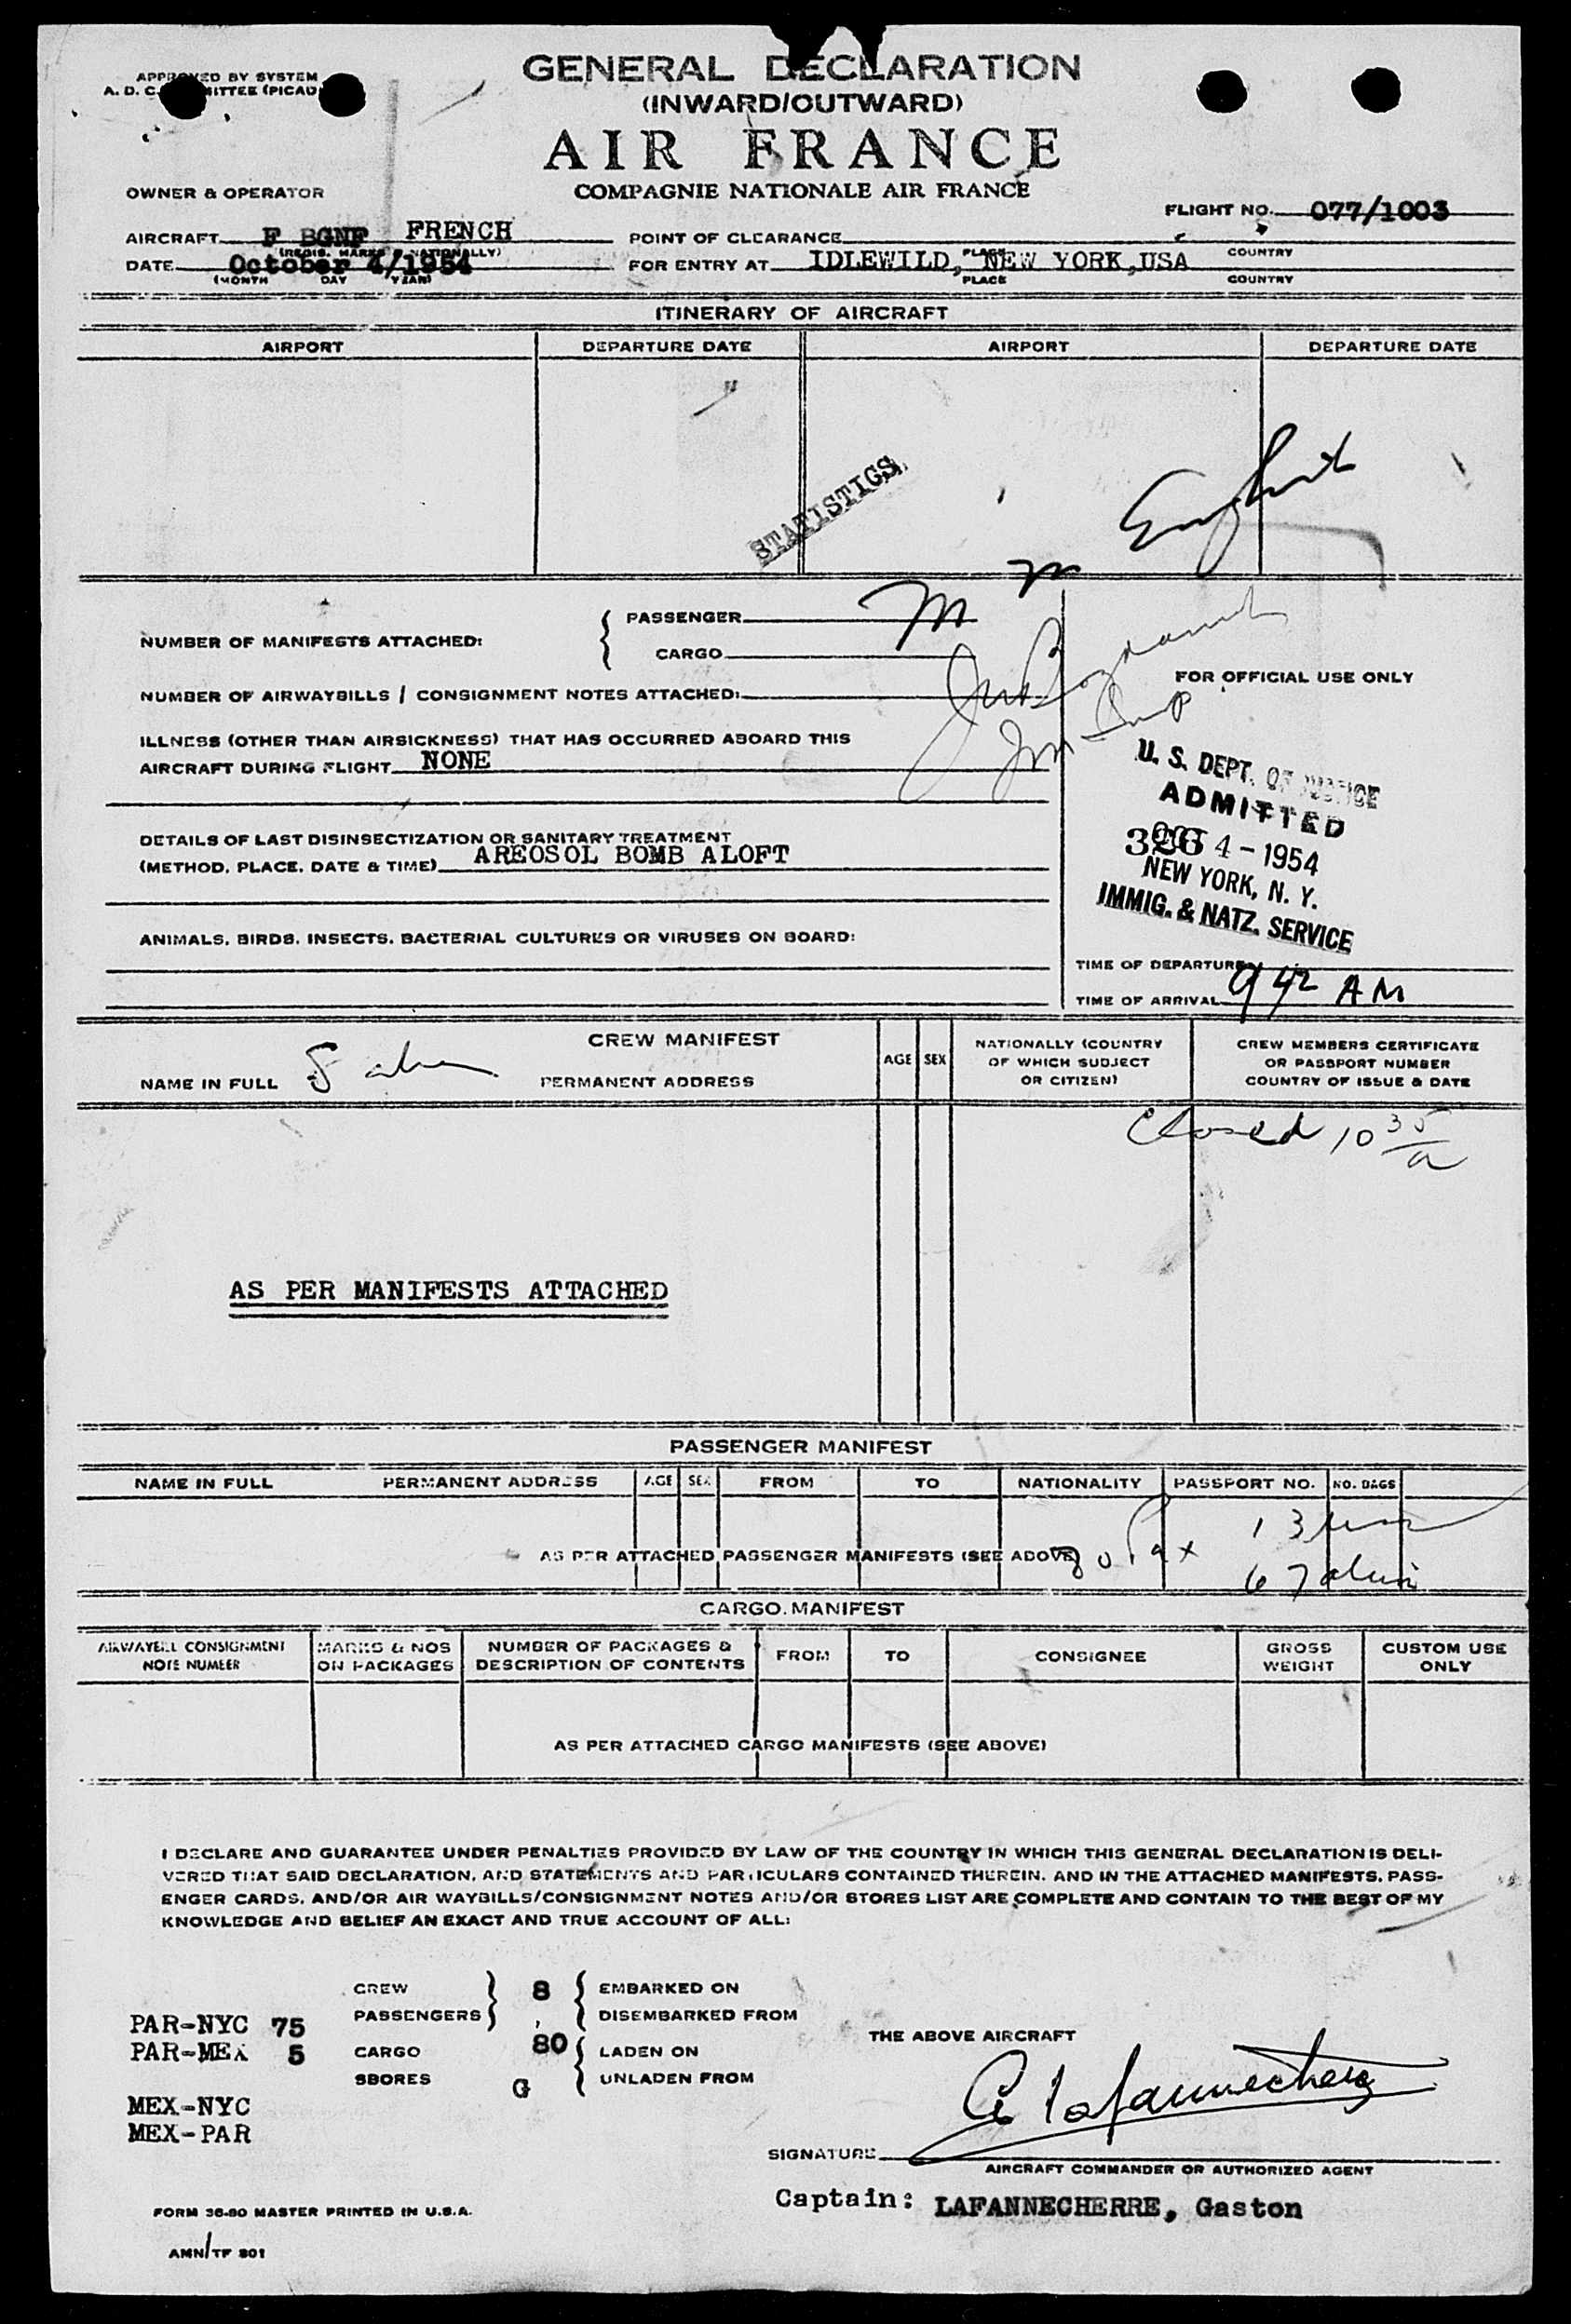 GENERAL DECLARATION
APPROVED BY SYSTEM
A. D. C. COMMITTEE (PICAO)
(INWARD/OUTWARD)
AIR FRANCE
COMPAGNIE NATIONALE AIR FRANCE
OWNER & OPERATOR
FLIGHT NO. 077/1003
AIRCRAFT F BGNF FRENCH POINT OF CLEARANCE
(REGIS. MARKS & NATIONALLY) PLACE COUNTRY
DATE October 4/1954 FOR ENTRY AT IDLEWILD, NEW YORK, USA
(MONTH DAY YEAR) PLACE COUNTRY
ITINERARY OF AIRCRAFT
AIRPORT DEPARTURE DATE AIRPORT DEPARTURE DATE
STATISTICS
NUMBER OF MANIFESTS ATTACHED: PASSENGER M
CARGO
NUMBER OF AIRWAYBILLS / CONSIGNMENT NOTES ATTACHED:
FOR OFFICIAL USE ONLY
ILLNESS (OTHER THAN AIRSICKNESS) THAT HAS OCCURRED ABOARD THIS
AIRCRAFT DURING FLIGHT NONE
U. S. DEPT. OF JUSTICE
ADMITTED
326 OCT 4 - 1954
NEW YORK, N. Y.
IMMIG. & NATZ. SERVICE
DETAILS OF LAST DISINSECTIZATION OR SANITARY TREATMENT
(METHOD, PLACE, DATE & TIME) AREOSOL BOMB ALOFT
ANIMALS, BIRDS, INSECTS, BACTERIAL CULTURES OR VIRUSES ON BOARD:
TIME OF DEPARTURE
TIME OF ARRIVAL 9 42 AM
CREW MANIFEST
NAME IN FULL PERMANENT ADDRESS AGE SEX
NATIONALLY (COUNTRY
OF WHICH SUBJECT
OR CITIZEN)
CREW MEMBERS CERTIFICATE
OR PASSPORT NUMBER
COUNTRY OF ISSUE & DATE
Closed 10 35/a
AS PER MANIFESTS ATTACHED
PASSENGER MANIFEST
NAME IN FULL PERMANENT ADDRESS AGE SEX FROM TO NATIONALITY PASSPORT NO. NO. BAGS
13
AS PER ATTACHED PASSENGER MANIFESTS (SEE ABOVE) 80 Pax
67
CARGO MANIFEST
AIRWAYBILL CONSIGNMENT
NOTE NUMBER
MARKS & NOS
ON PACKAGES
NUMBER OF PACKAGES &
DESCRIPTION OF CONTENTS
FROM TO CONSIGNEE
GROSS
WEIGHT
CUSTOM USE
ONLY
AS PER ATTACHED CARGO MANIFESTS (SEE ABOVE)
I DECLARE AND GUARANTEE UNDER PENALTIES PROVIDED BY LAW OF THE COUNTRY IN WHICH THIS GENERAL DECLARATION IS DELI-
VERED THAT SAID DECLARATION, AND STATEMENTS AND PARTICULARS CONTAINED THEREIN, AND IN THE ATTACHED MANIFESTS, PASS-
ENGER CARDS, AND/OR AIR WAYBILLS/CONSIGNMENT NOTES AND/OR STORES LIST ARE COMPLETE AND CONTAIN TO THE BEST OF MY
KNOWLEDGE AND BELIEF AN EXACT AND TRUE ACCOUNT OF ALL:
CREW 8 EMBARKED ON
PASSENGERS DISEMBARKED FROM
PAR-NYC 75
THE ABOVE AIRCRAFT
PAR-MEX 5 CARGO 80 LADEN ON
SBORES G UNLADEN FROM
MEX-NYC
MEX-PAR
G Lafannecherre
SIGNATURE
AIRCRAFT COMMANDER OR AUTHORIZED AGENT
Captain: LAFANNECHERRE, Gaston
FORM 36-80 MASTER PRINTED IN U.S.A.
AMN/TF 801